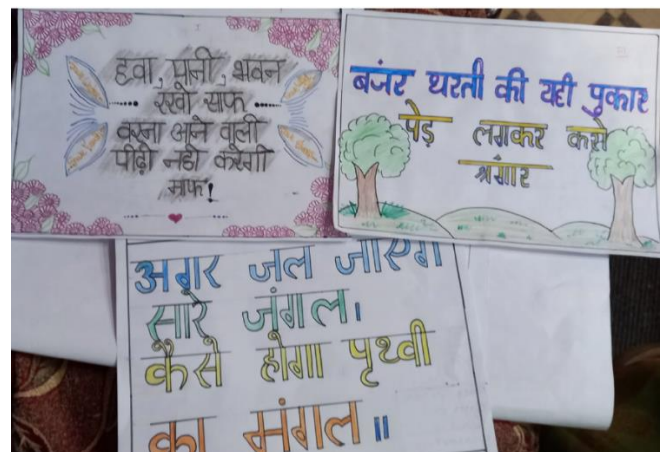 हवा, पानी, भवन
रखो साफ
वरना आने वाली
पीढ़ी नही करेगी
माफ!
बजंर धरती की यही पुकार
पेड़ लगकर करो
श्रंगार
अगर जल जाएंगे
सारे जंगल।
कैसे होगा पृथ्वी
का मंगल॥